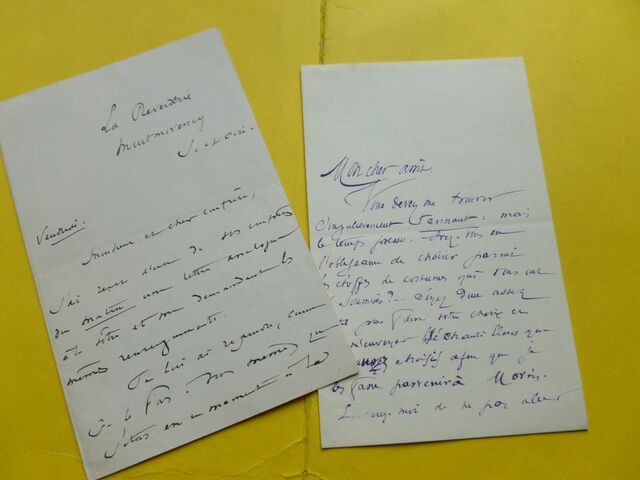 La Rêverie
Montmorency
S. et Oise.
Vendredi.
Monsieur et cher confrère,
J'ai reçu d'un de vos confrères
du matin une lettre analogue
à la vôtre et me demandant les
mêmes renseignements.
Je lui ai répondu, comme
je le fais
J'étais en ce moment à
Mon cher ami
Vous devez me trouver
singulièrement tannant : mais
le temps presse.
l'obligeance de choisir parmi
les étoffes de costumes qui vous ont
été soumises ? Soyez donc assez
pour faire votre choix et
m'envoyer les échantillons que
choisis afin que je
les fasse parvenir à Morin.
de ne pas aller